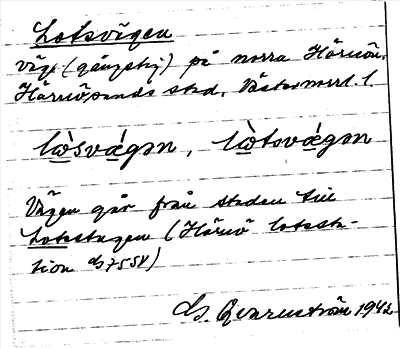 Lotsvägen
väg (gångstig) på norra Härnön,
Härnösands stad, Västernorrl. l.
lòsvágən, lòtsvágən
Vägen går från staden till
Lotsstugan (Härnö lotssta-
tion
1942